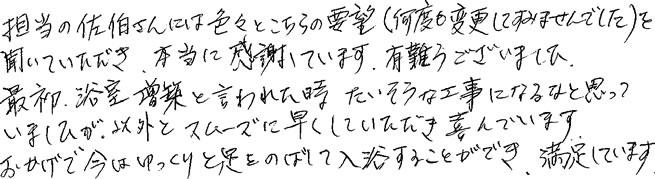 担当の佐伯さんには色々とこちらの要望(何度も変更してすみませんでした)を
聞いていただき、本当に感謝しています。有難うございました。
最初、浴室増築と言われた時 たいそうな工事になるなと思って
いましたが、以外と スムーズに早くしていただき喜んでいます。
おかげで今はゆっくりと足をのばして入浴することができ、満足しています